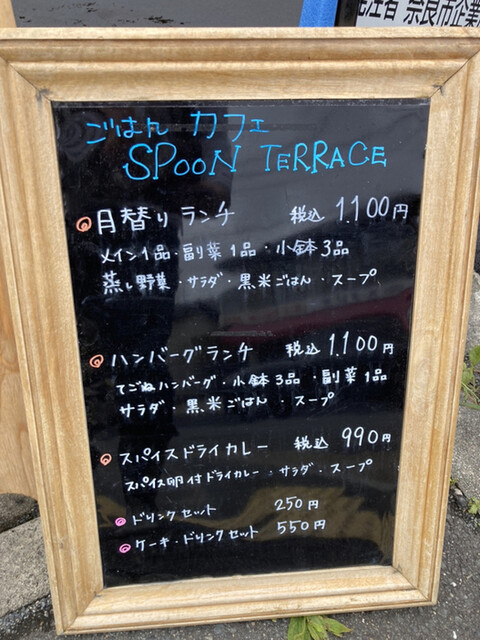 発注者 奈良市企業
ごはん カフェ
SPOON TERRACE
月替りランチ 税込 1.100円
メイン1品・副菜1品・小鉢3品
蒸し野菜・サラダ・黒米ごはん・スープ
ハンバーグランチ 税込 1.100円
てごねハンバーグ・小鉢3品・副菜1品
サラダ・黒米ごはん・スープ
スパイスドライカレー 税込 990円
スパイス卵付ドライカレー・サラダ・スープ
ドリンクセット 250円
ケーキ・ドリンクセット 550円